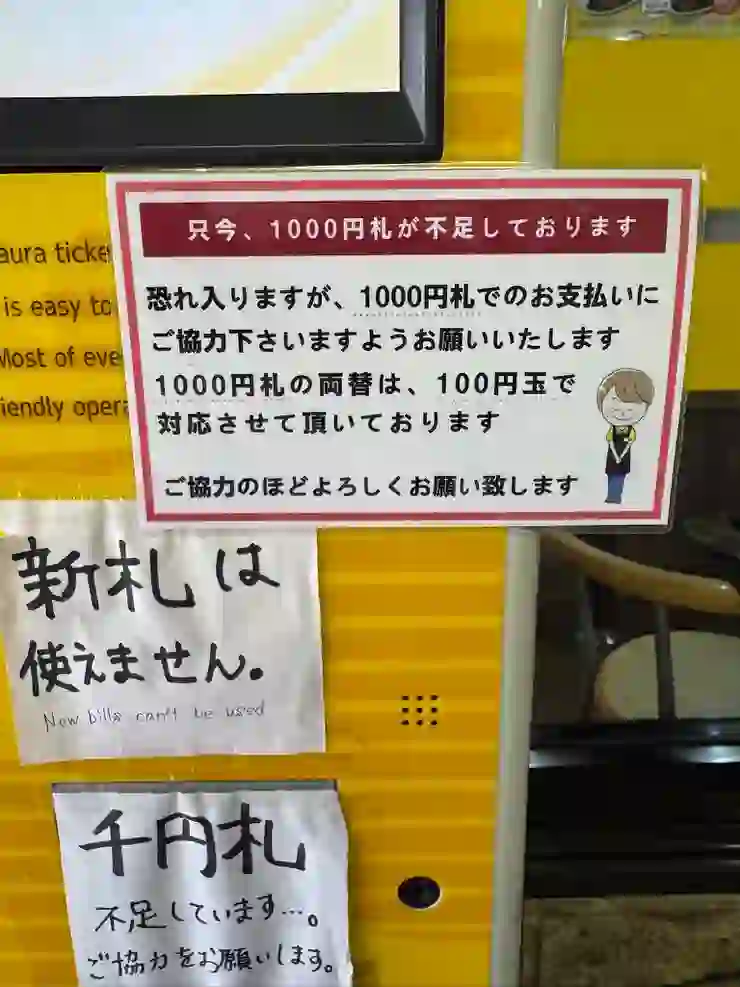 aura ticke
is easy to
Most of eve
iendly opera
只今、1000円札が不足しております
恐れ入りますが、1000円札でのお支払いに
ご協力下さいますようお願いいたします
1000円札の両替は、100円玉で
対応させて頂いております
ご協力のほどよろしくお願い致します
新札は
使えません。
New bills can't be used
千円札
不足しています…。
ご協力をお願いします。